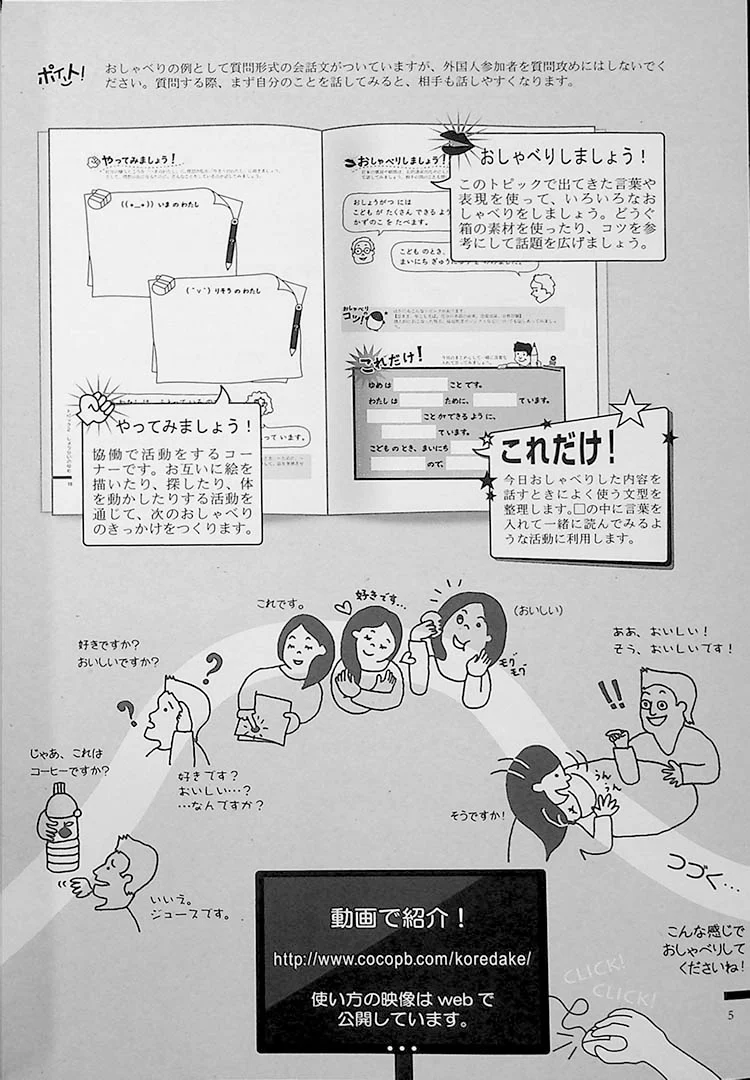 ポイント!
おしゃべりの例として質問形式の会話文がついていますが、外国人参加者を質問攻めにはしないでく
ださい。質問する際、まず自分のことを話してみると、相手も話しやすくなります。
やってみましょう!
((+__+)) いま の わたし
(ˆvˆ) りそう の わたし
おしゃべりしましょう!
おしょうがつ には
こども が たくさん できる よう
かずのこ を たべます。
こども の とき、
まいにち ぎゅう
おしゃべり
コツ!
おしゃべりしましょう!
このトピックで出てきた言葉や
表現を使って、いろいろなお
しゃべりをしましょう。どうぐ
箱の素材を使ったり、コツを参
考にして話題を広げましょう。
これだけ!
ゆめ は こと です。
わたし は ために、 ています。
こと が できる よう に、
ています。
こども の とき、まいにち
ので、
やってみましょう!
協働で活動をするコー
ナーです。お互いに絵を
描いたり、探したり、体
を動かしたりする活動を
通じて、次のおしゃべり
のきっかけをつくります。
って います。
これだけ!
今日おしゃべりした内容を
話すときによく使う文型を
整理します。□の中に言葉を
入れて一緒に読んでみるよ
うな活動に利用します。
これです。
好きです…
(おいしい)
モグ
モグ
好きですか?
おいしいですか?
?
?
ああ、おいしい!
そう、おいしいです!
!!
じゃあ、これは
コーヒーですか?
好きです?
おいしい…?
…なんですか?
うん
うん
そうですか!
いいえ。
ジュースです。
つづく…
動画で紹介!
http://www.cocopb.com/koredake/
使い方の映像は web で
公開しています。
こんな感じで
おしゃべりして
くださいね!
CLICK!
CLICK!
5